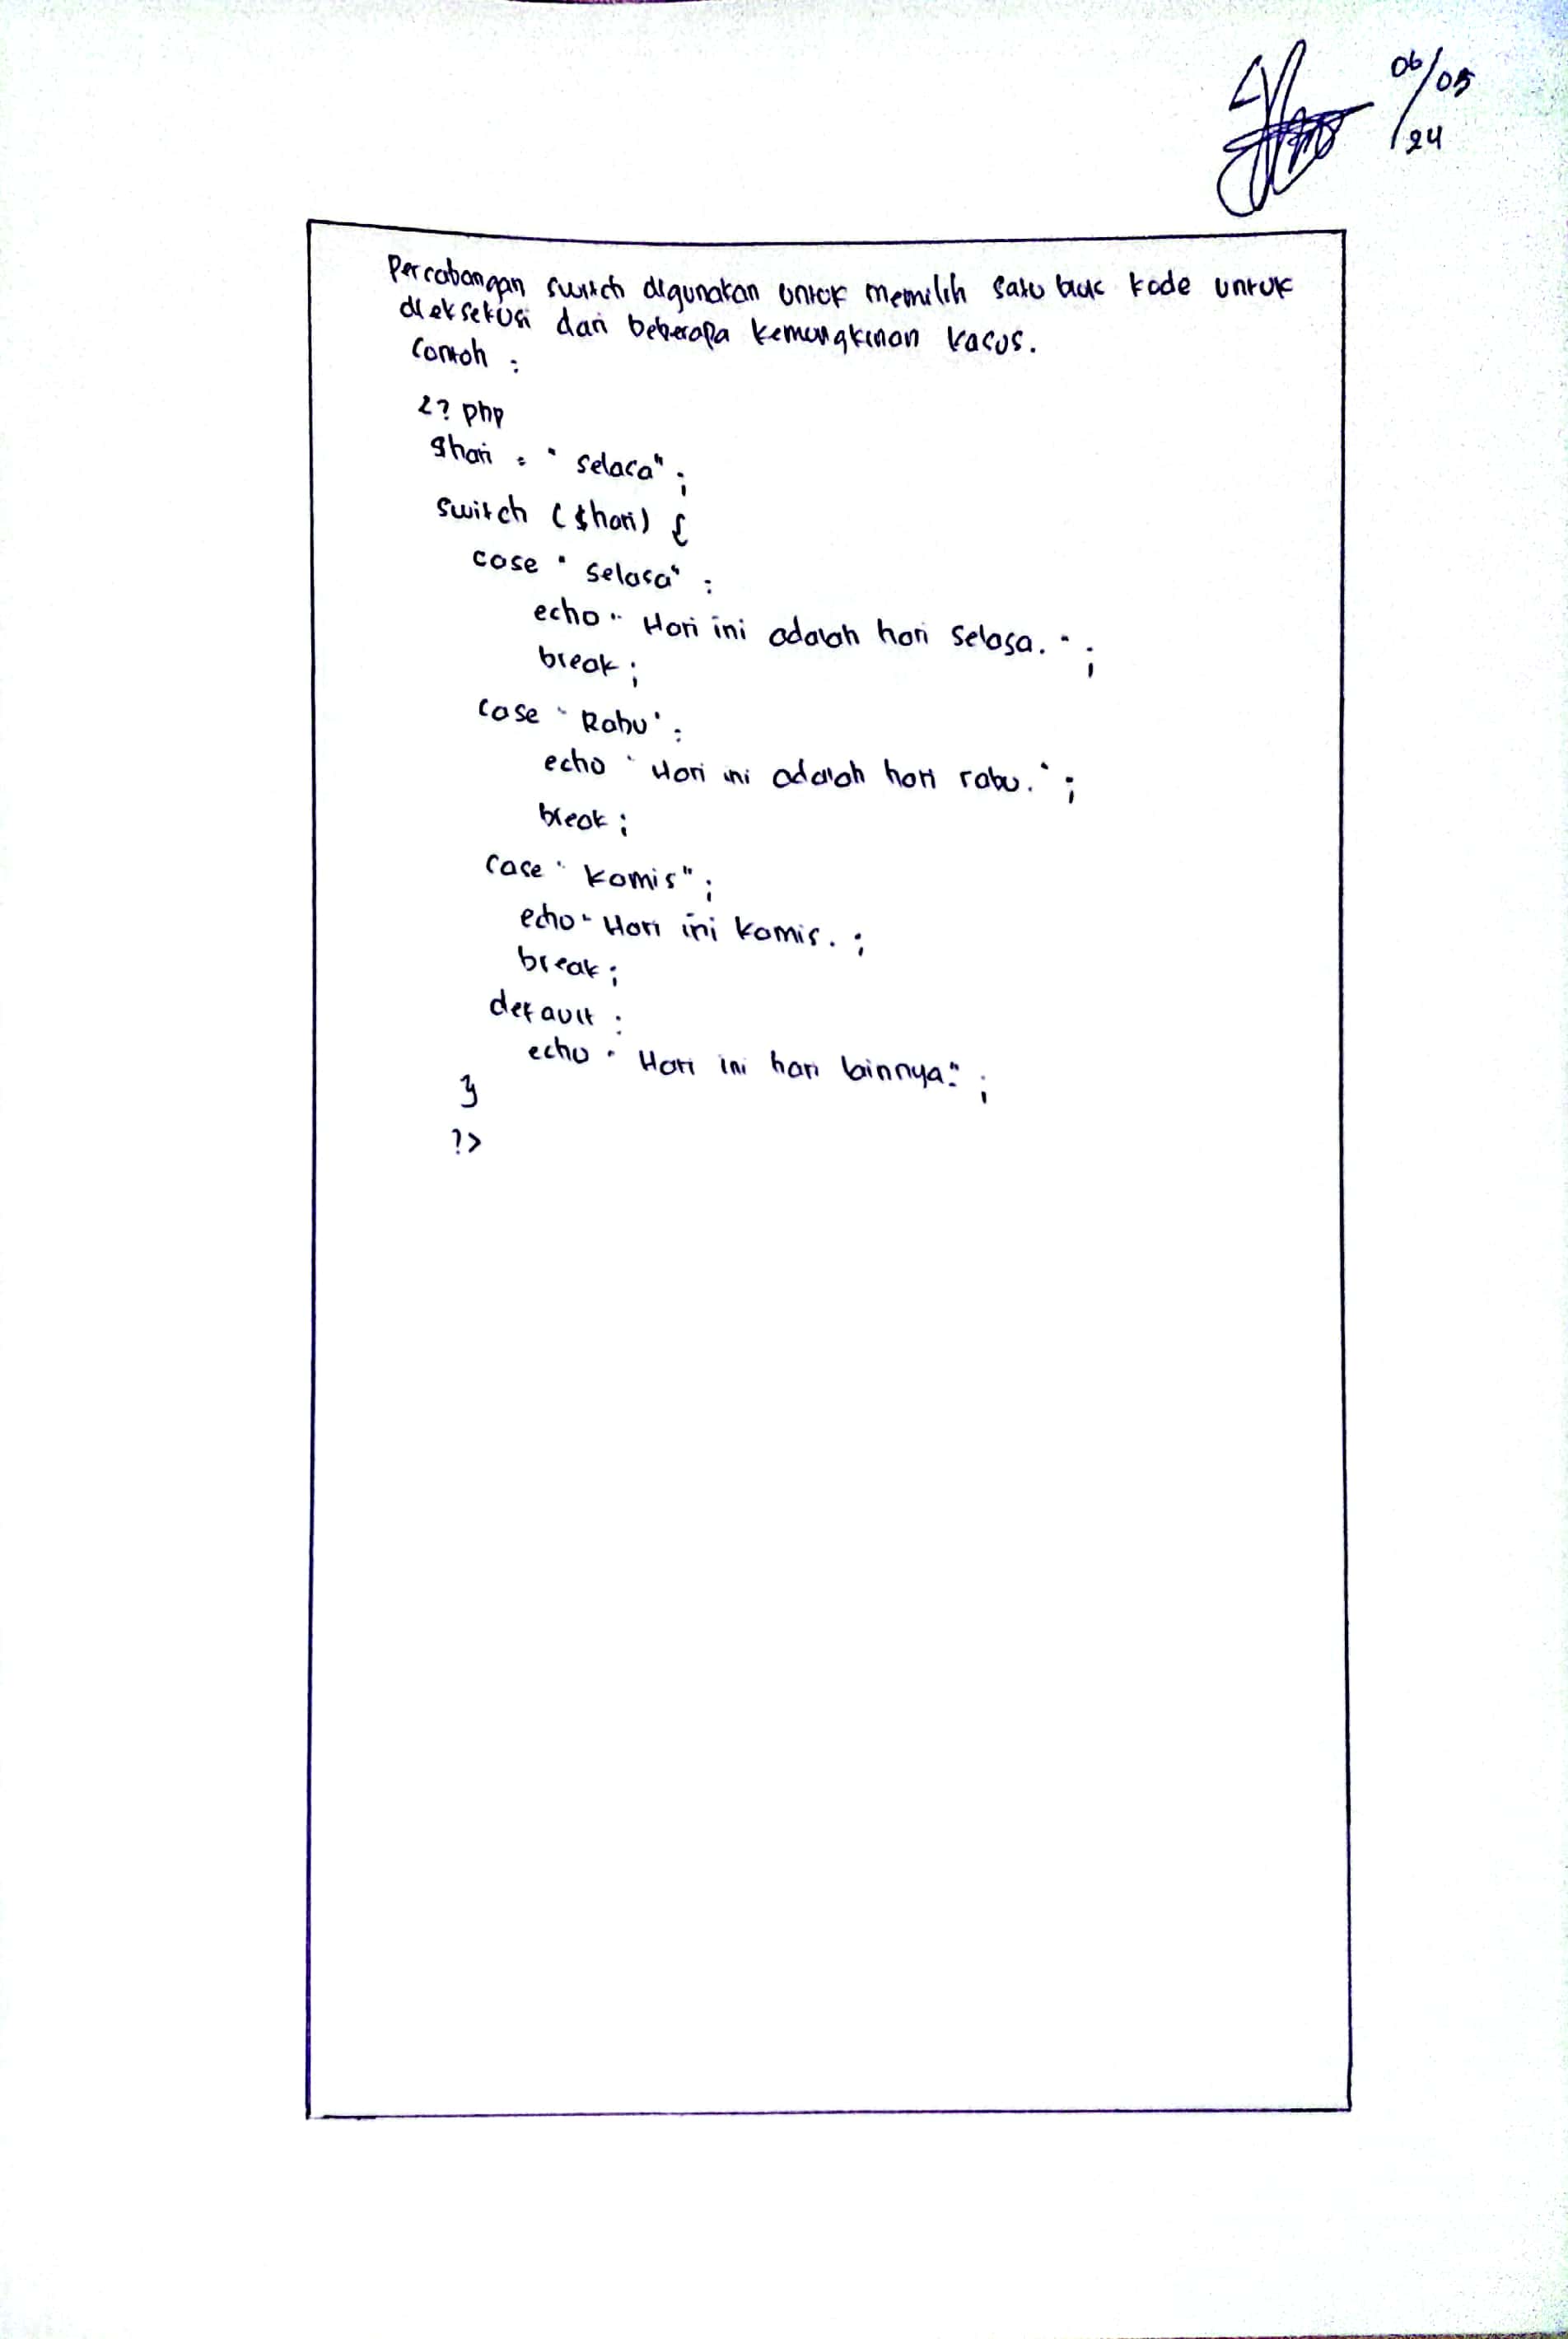 06/05/24
Percabangan switch digunakan untuk memilih satu blok kode untuk
dieksekusi dari beberapa kemungkinan kasus.
Contoh :
<? php
$hari = "selasa";
switch ($hari) {
case "selasa" :
echo "Hari ini adalah hari selasa.";
break;
case "Rabu" :
echo "Hari ini adalah hari rabu.";
break;
case "kamis";
echo "Hari ini kamis. ;
break;
default :
echo "Hari ini hari lainnya.";
}
?>